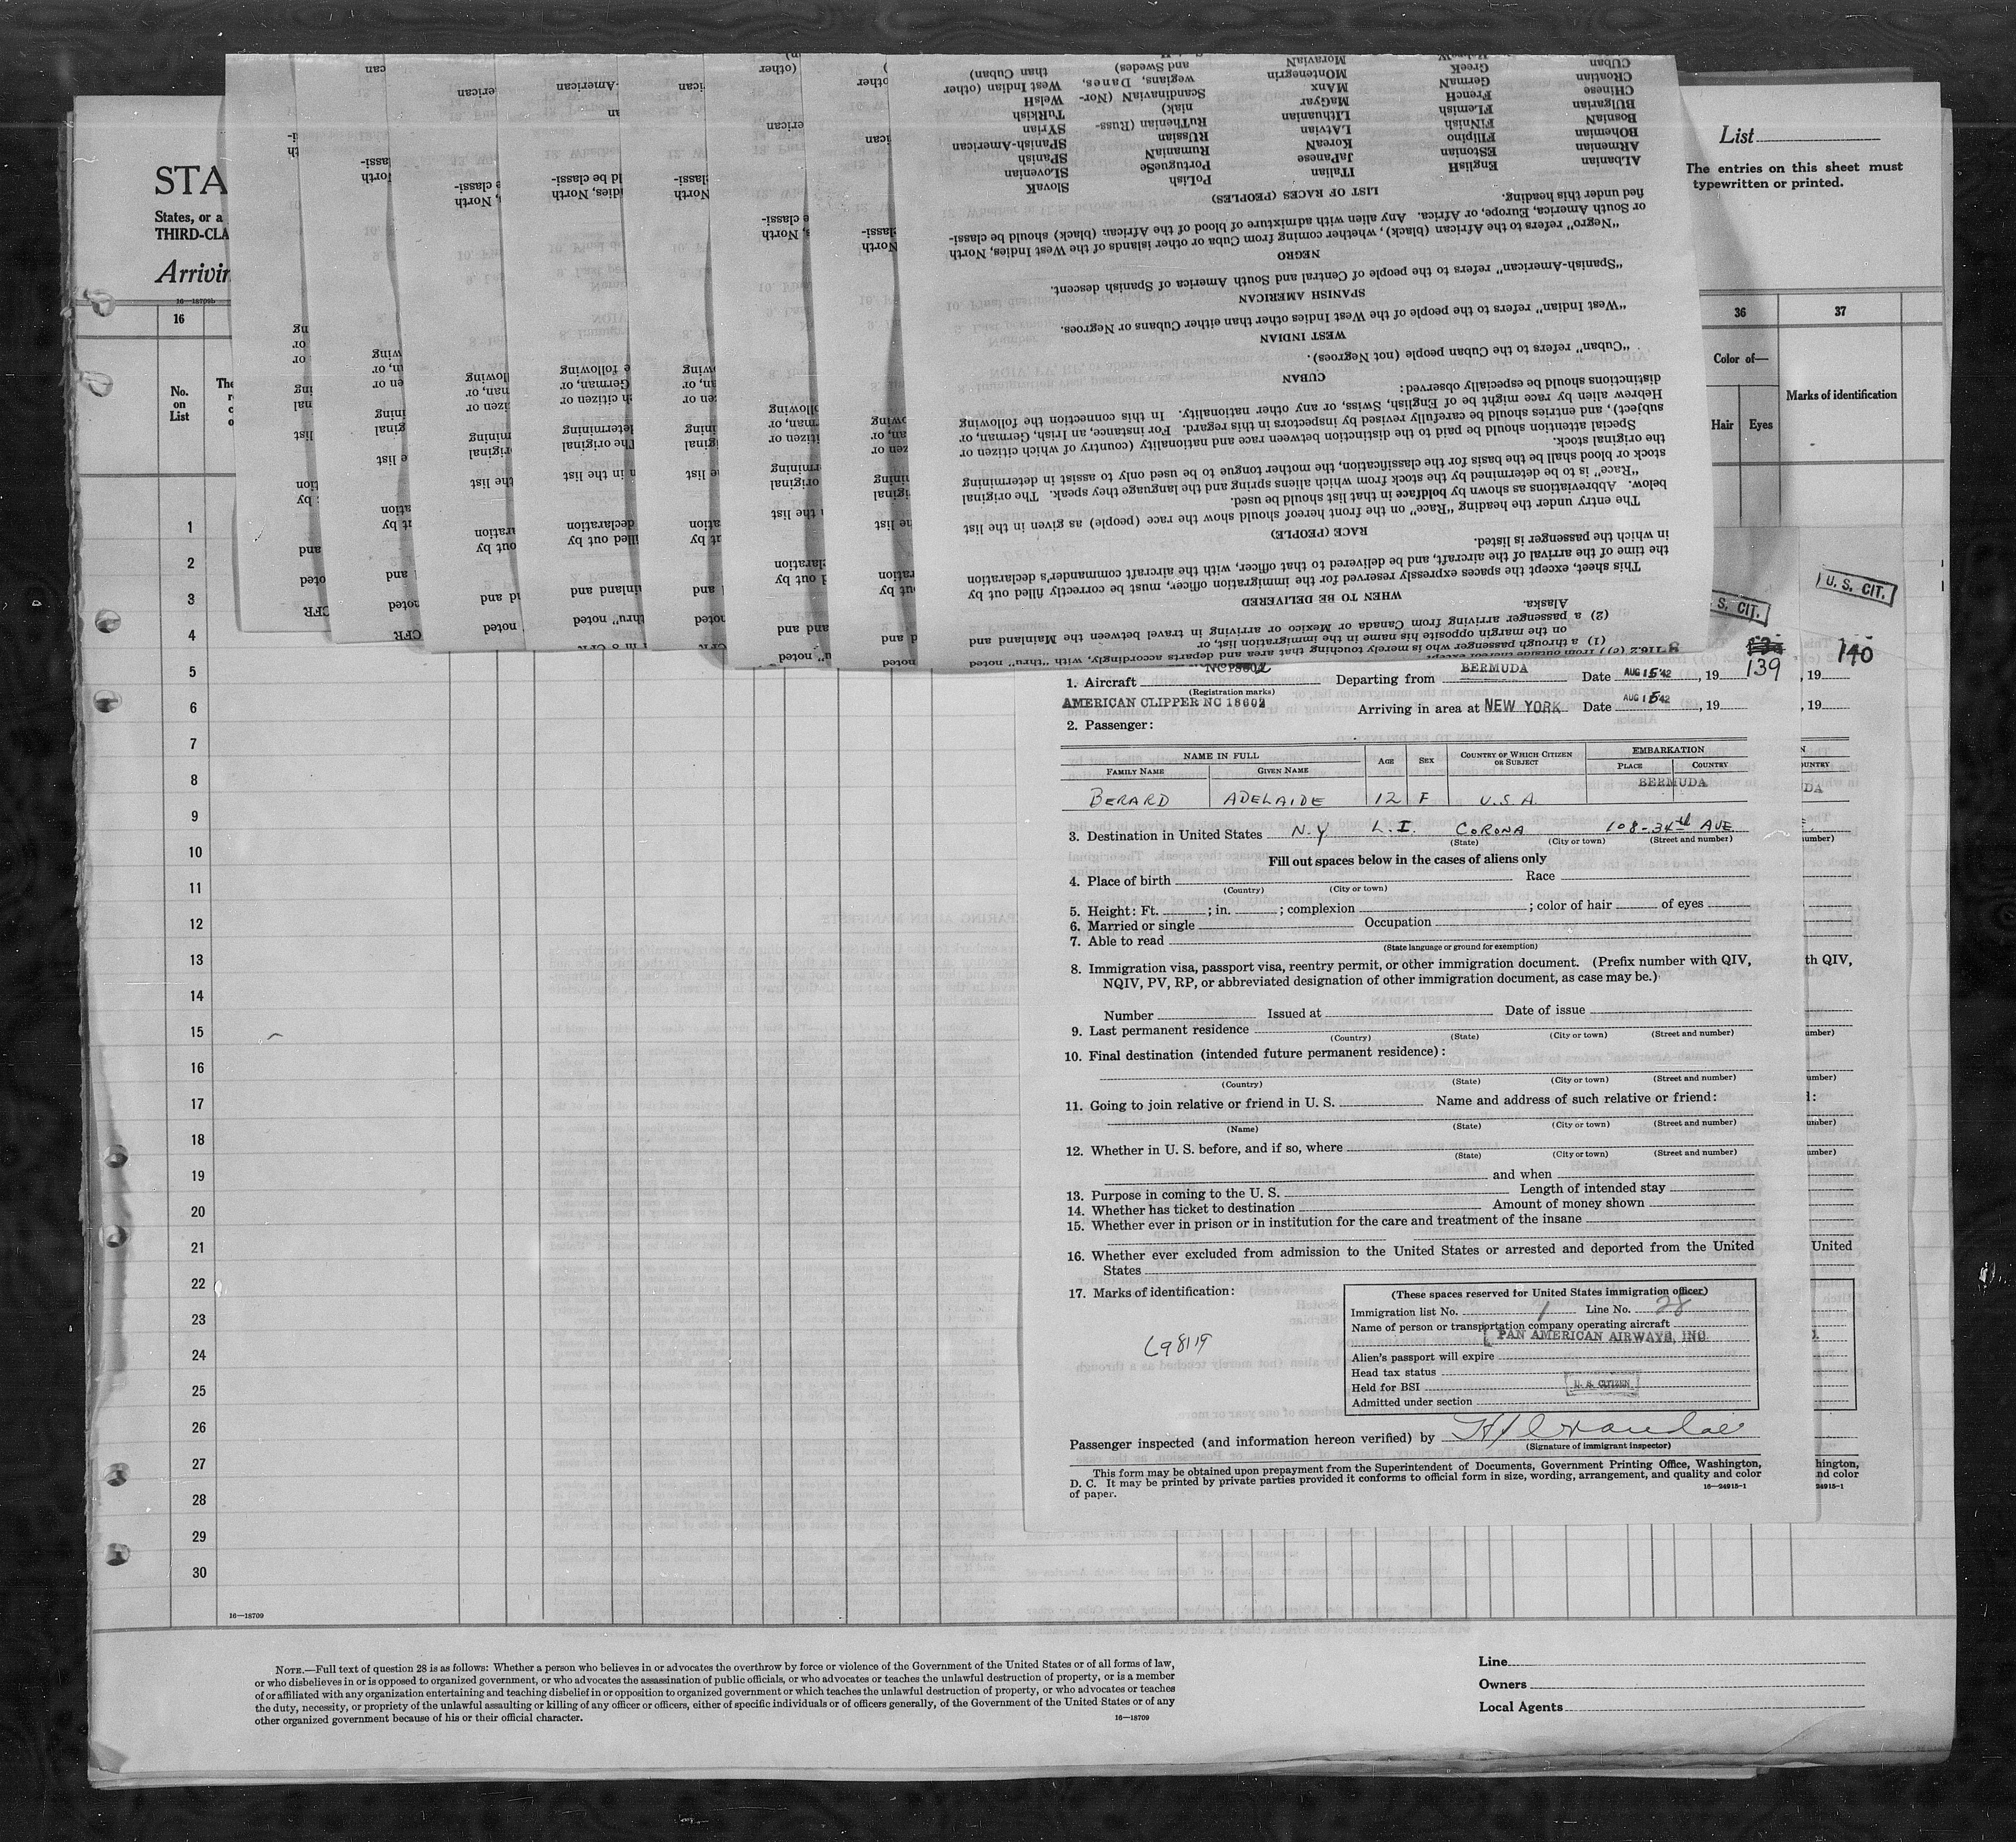 List
The entries on this sheet must
typewritten or printed.
STA
States, or a
THIRD-CLA
Arrivin
16—18709b
16
36
37
No.
on
List
Color of—
Hair
Eyes
Marks of identification
SlovaK
PoLish
ITAlian
EnglisH
ALbanian
SLOvenian
PortugueSe
JaPanese
EStonian
ARmenian
SPanish
RumaniaN
KoreaN
Filipino
BOhemian
SPanish-American
RUssian
LAtvian
FiNNish
BosniaN
SYrian
RuThenian (Russ-
niak)
LIthuanian
FLemish
BUlgarian
TuRkish
MaGyar
FrencH
CHinese
WelsH
ScandinaviaN (Nor-
wegians, Danes,
and Swedes)
MAnx
GermaN
CRoatian
West Indian (other
than Cuban)
MOntenegrin
GreeK
CUban
MoraviaN
LIST OF RACES (PEOPLES)
"Negro" refers to the African (black), whether coming from Cuba or other islands of the West Indies, North
or South America, Europe, or Africa. Any alien with admixture of blood of the African (black) should be classi-
fied under this heading.
NEGRO
"Spanish-American" refers to the people of Central and South America of Spanish descent.
SPANISH AMERICAN
"West Indian" refers to the people of the West Indies other than either Cubans or Negroes.
WEST INDIAN
"Cuban" refers to the Cuban people (not Negroes).
CUBAN
Special attention should be paid to the distinction between race and nationality (country of which citizen or
subject), and entries should be carefully revised by inspectors in this regard. For instance, an Irish, German, or
Hebrew alien by race might be of English, Swiss, or any other nationality. In this connection the following
distinctions should be especially observed:
"Race" is to be determined by the stock from which aliens spring and the language they speak. The original
stock or blood shall be the basis for the classification, the mother tongue to be used only to assist in determining
the original stock.
The entry under the heading "Race" on the front hereof should show the race (people) as given in the list
below. Abbreviations as shown by boldface in that list should be used.
RACE (PEOPLE)
This sheet, except the spaces expressly reserved for the immigration officer, must be correctly filled out by
the time of the arrival of the aircraft, and be delivered to that officer, with the aircraft commander's declaration
in which the passenger is listed.
WHEN TO BE DELIVERED
(1) a through passenger who is merely touching that area and departs accordingly, with "thru" noted
on the margin opposite his name in the immigration list, or
(2) a passenger arriving from Canada or Mexico or arriving in travel between the Mainland and
Alaska.
U. S. CIT.
S. CIT.
139
140
1. Aircraft NC18602 Departing from BERMUDA Date AUG 15 '42, 19
(Registration marks)
AMERICAN CLIPPER NC 18602 Arriving in area at NEW YORK Date AUG 15 '42, 19
2. Passenger:
NAME IN FULL
FAMILY NAME
GIVEN NAME
AGE
SEX
COUNTRY OF WHICH CITIZEN OR SUBJECT
EMBARKATION
PLACE
COUNTRY
BERMUDA
BERARD ADELAIDE 12 F U.S.A.
3. Destination in United States N.Y L.I. CORONA 108-34th AVE.
(State) (City or town) (Street and number)
Fill out spaces below in the cases of aliens only
4. Place of birth Race
(Country) (City or town)
5. Height: Ft. ; in. ; complexion ; color of hair of eyes
6. Married or single Occupation
7. Able to read
(State language or ground for exemption)
8. Immigration visa, passport visa, reentry permit, or other immigration document. (Prefix number with QIV,
NQIV, PV, RP, or abbreviated designation of other immigration document, as case may be.)
Number Issued at Date of issue
9. Last permanent residence
(Country) (State) (City or town) (Street and number)
10. Final destination (intended future permanent residence):
(Country) (State) (City or town) (Street and number)
11. Going to join relative or friend in U. S. Name and address of such relative or friend:
(Name) (State) (City or town) (Street and number)
12. Whether in U. S. before, and if so, where
(State) (City or town) (Street and number)
and when
13. Purpose in coming to the U. S. Length of intended stay
14. Whether has ticket to destination Amount of money shown
15. Whether ever in prison or in institution for the care and treatment of the insane
16. Whether ever excluded from admission to the United States or arrested and deported from the United
States
17. Marks of identification:
(These spaces reserved for United States immigration officer)
Immigration list No. 1 Line No. 28
Name of person or transportation company operating aircraft
PAN AMERICAN AIRWAYS, INC.
Alien's passport will expire
Head tax status
Held for BSI U. S. CITIZEN
Admitted under section
L98119
Passenger inspected (and information hereon verified) by
(Signature of immigrant inspector)
This form may be obtained upon prepayment from the Superintendent of Documents, Government Printing Office, Washington,
D. C. It may be printed by private parties provided it conforms to official form in size, wording, arrangement, and quality and color
of paper.
16—24915-1
1
2
3
4
5
6
7
8
9
10
11
12
13
14
15
16
17
18
19
20
21
22
23
24
25
26
27
28
29
30
16—18709
NOTE.—Full text of question 28 is as follows: Whether a person who believes in or advocates the overthrow by force or violence of the Government of the United States or of all forms of law,
or who disbelieves in or is opposed to organized government, or who advocates the assassination of public officials, or who advocates or teaches the unlawful destruction of property, or is a member
of or affiliated with any organization entertaining and teaching disbelief in or opposition to organized government or which teaches the unlawful destruction of property, or who advocates or teaches
the duty, necessity, or propriety of the unlawful assaulting or killing of any officer or officers, either of specific individuals or of officers generally, of the Government of the United States or of any
other organized government because of his or their official character.
16—18709
Line
Owners
Local Agents